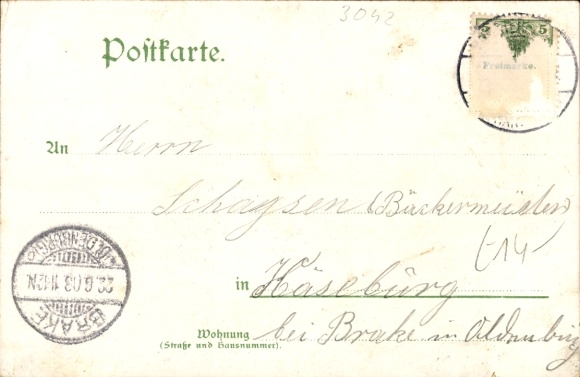 3042
Postkarte.
5 5
Freimarke.
An Herrn
Schagsen (Bäckermeister)
(-14-
in Käseburg
Wohnung
(Straße und Hausnummer).
bei Brake in Oldenburg
BRAKE
22.6.03. 11-12N.
OLDENBURG